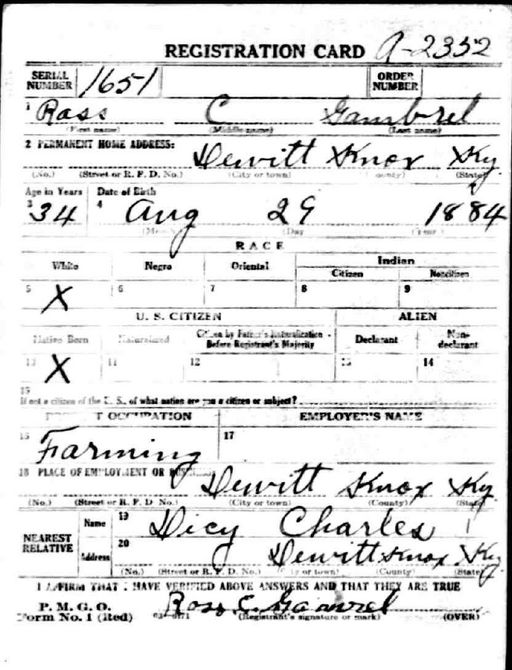 REGISTRATION CARD A-2352
SERIAL NUMBER 1651 ORDER NUMBER
1 Ross C Gambrel
(First name) (Middle name) (Last name)
2 PERMANENT HOME ADDRESS: Dewitt Knox Ky
(No.) (Street or R. F. D. No.) (City or town) (County) (State)
Age in Years Date of Birth
3 34 4 Aug 29 1884
(Month) (Day) (Year)
RACE
White Negro Oriental Indian
Citizen Noncitizen
5 X 6 7 8 9
U. S. CITIZEN ALIEN
Native Born Naturalized Citizen by Father's Naturalization Before Registrant's Majority Declarant Non-declarant
10 X 11 12 13 14
15
If not a citizen of the U. S., of what nation are you a citizen or subject?
T OCCUPATION EMPLOYER'S NAME
16 Farming 17
18 PLACE OF EMPLOYMENT OR BUSINESS: Dewitt Knox Ky
(No.) (Street or R. F. D. No.) (City or town) (County) (State)
NEAREST RELATIVE Name 19 Dicy Charles
Address 20 Dewitt Knox Ky
(No.) (Street or R. F. D. No.) (City or town) (County) (State)
I AFFIRM THAT I HAVE VERIFIED ABOVE ANSWERS AND THAT THEY ARE TRUE
P. M. G. O.
Form No. 1 (Red) Ross C. Gambrel
(Registrant's signature or mark) (OVER)